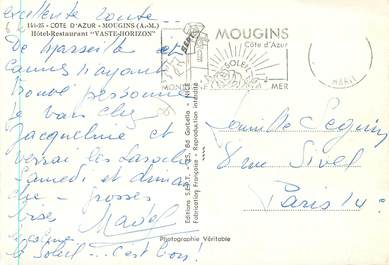 excellente route
14-35 - COTE D'AZUR - MOUGINS (A.-M.)
Hôtel-Restaurant "VASTE-HORIZON"
De Marseille et
Cannes n'ayant
trouvé personne
je vais chez
Jacqueline et
verrai les
Samedi et diman
che - grosses
bises
le soleil... c'est bon!
Editions S.E.P.T. - Bd Gorbella - NICE
Fabrication Française - Reproduction interdite
Photographie Véritable
MOUGINS
Côte d'Azur
SOLEIL
MER
Famille Seguin
8 rue Sivel
Paris 14